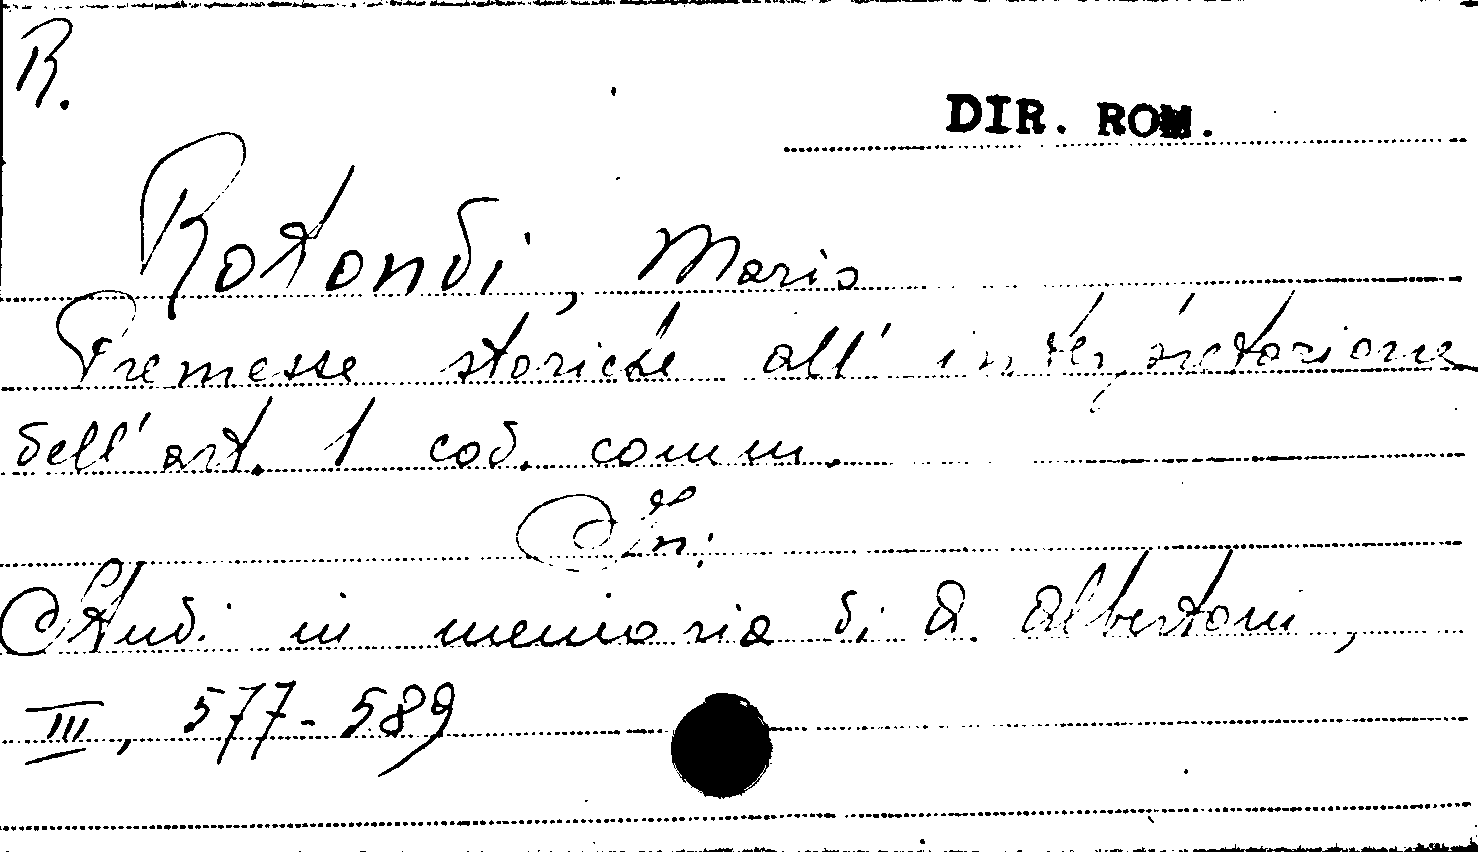 R.
DIR. ROM.
Rotondi, Mario
Premesse storiche all'interpretazione
dell'art. 1 cod. comm.
In:
Studi in memoria di A. Albertoni,
III, 577-589